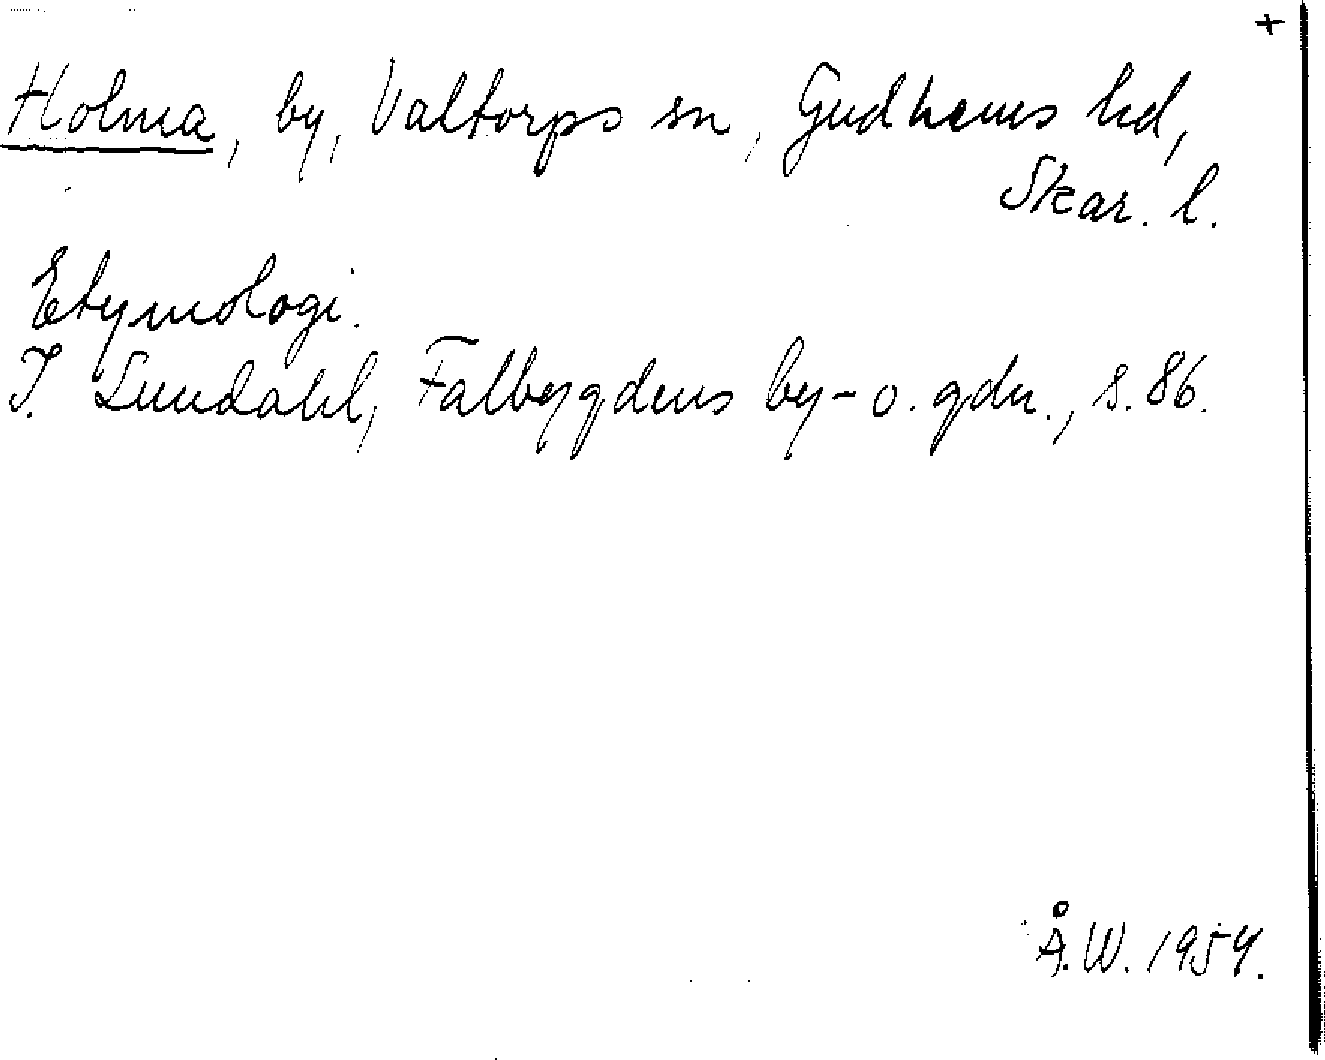 +
Holma, by, Valtorps sn, Gudhems hd,
Skar. l.
Etymologi.
I. Lundahl, Falbygdens by- o. gdn., s. 86.
Å.W. 1954.